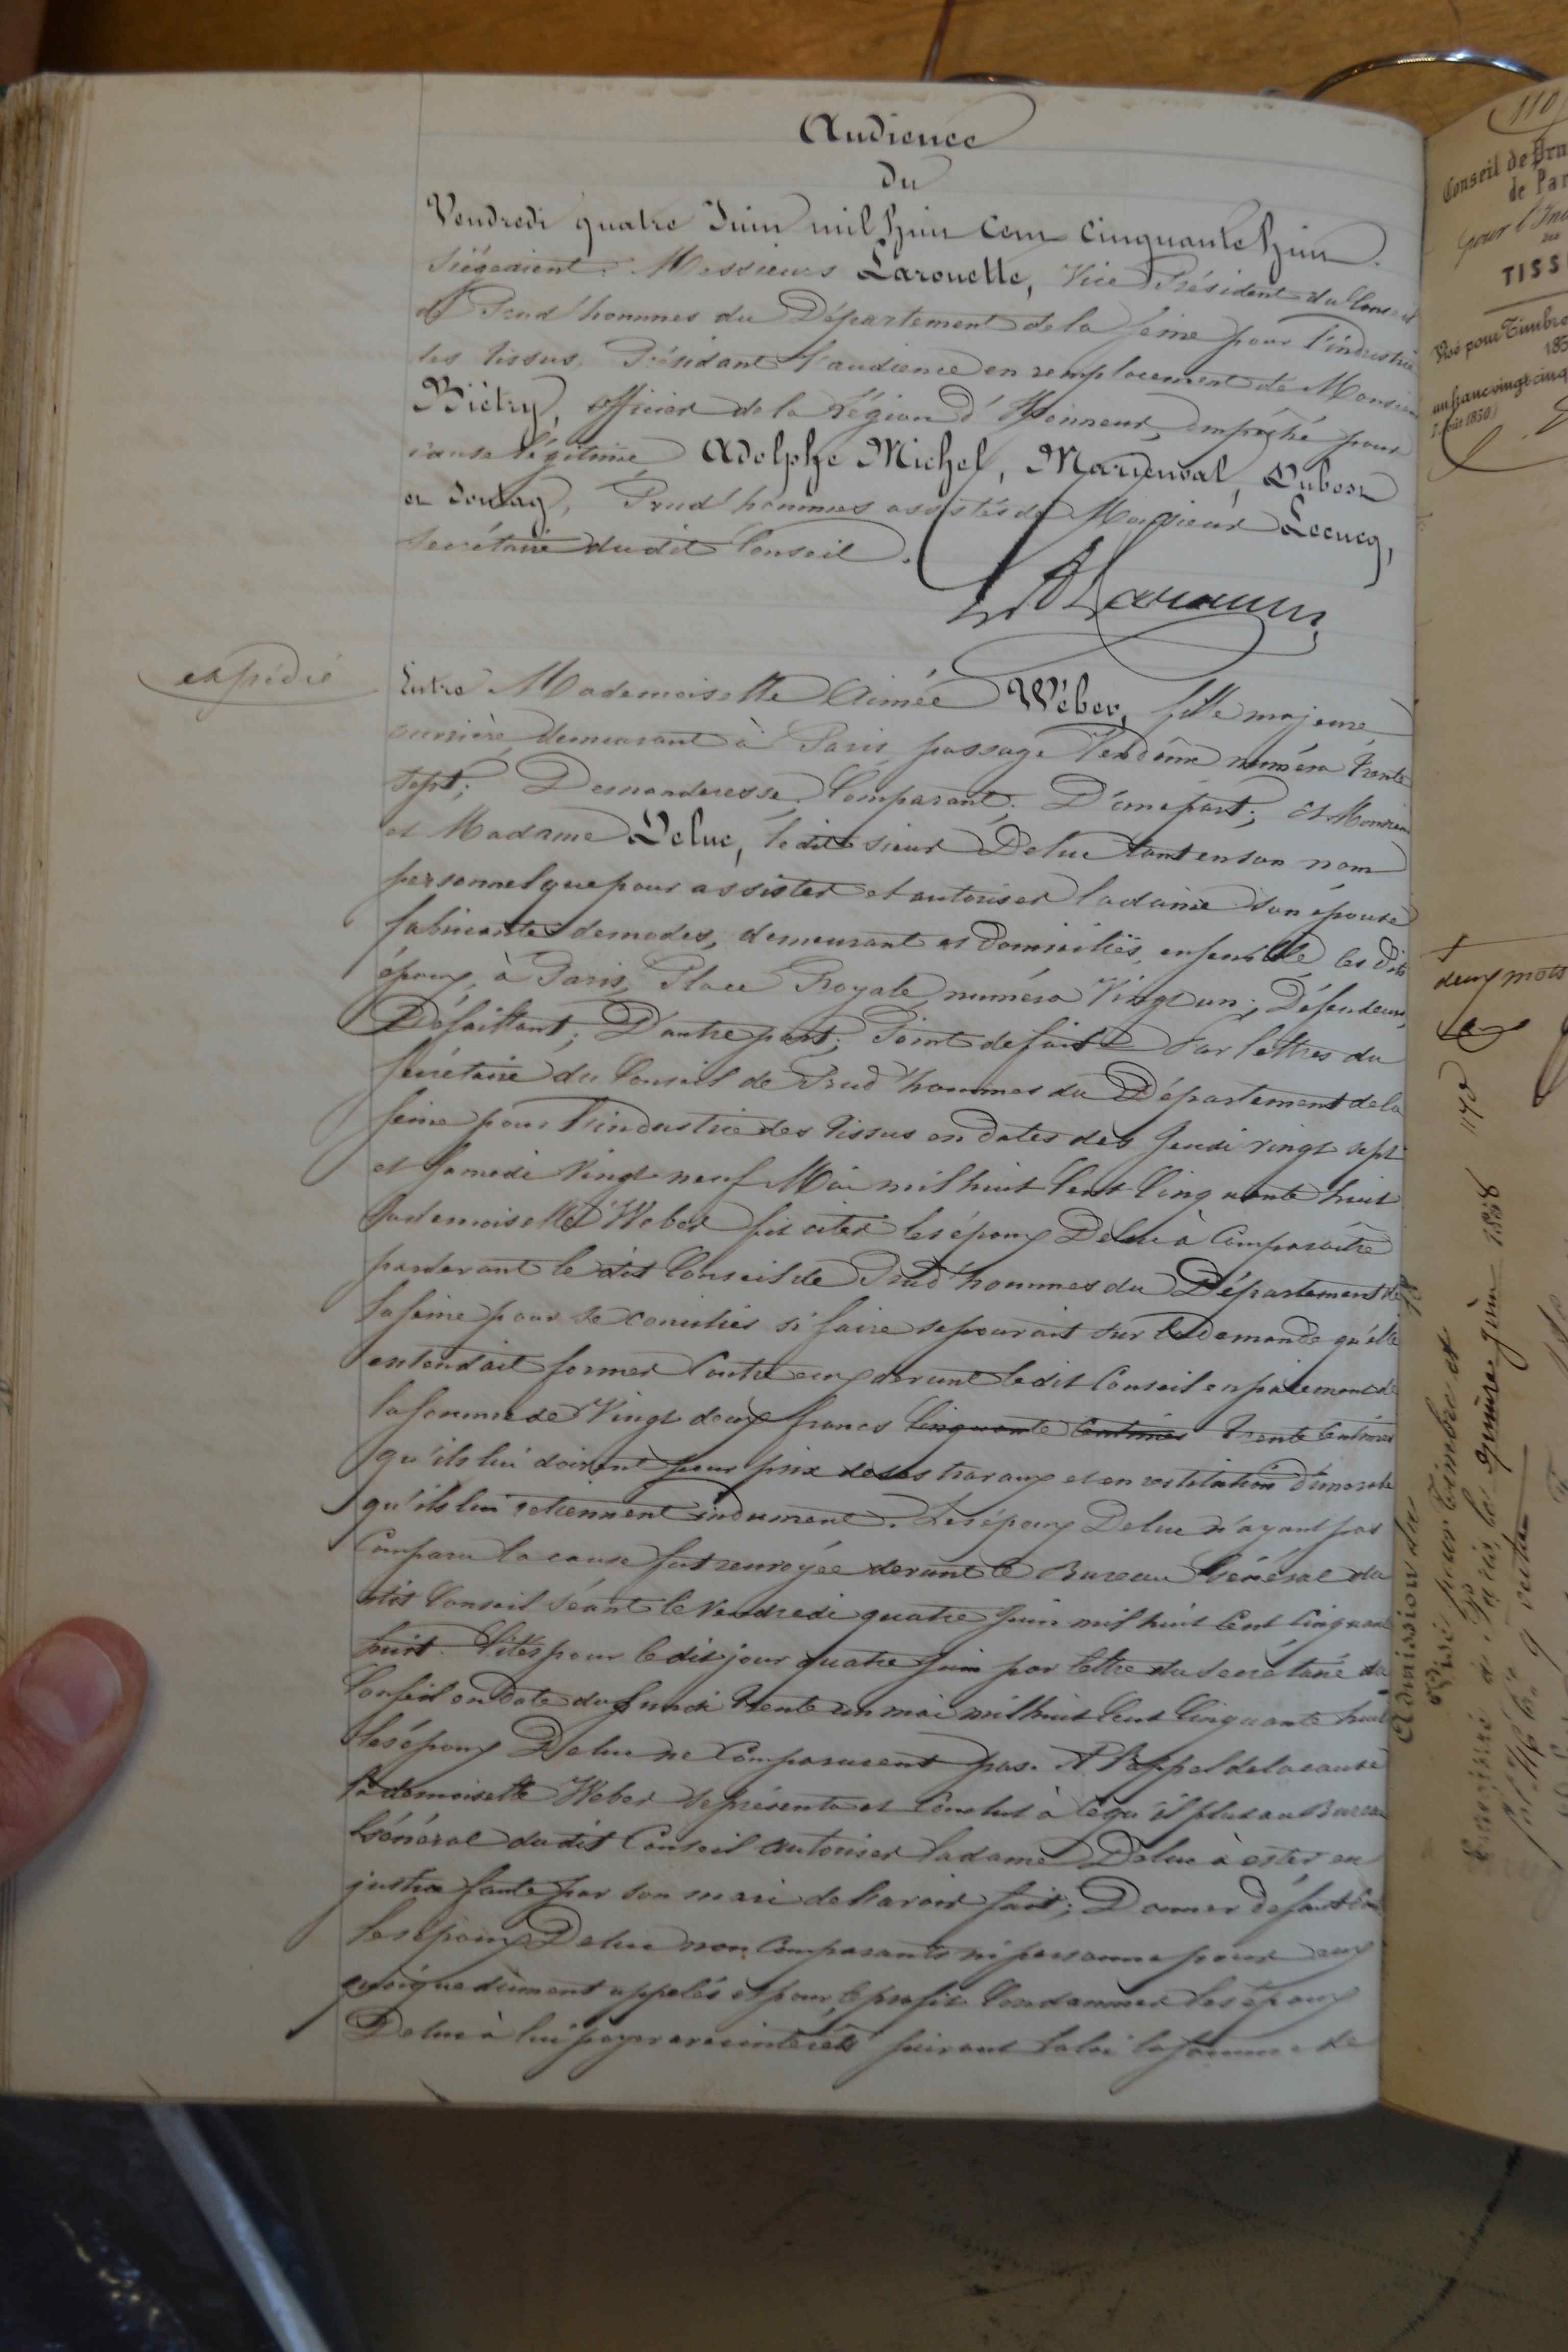 Audience
du
Vendredi quatre Juin mil huit cent cinquante huit.
Siégeaient: Messieurs Larouette, Vice Président du Conseil
de Prud'hommes du Département de la Seine pour l'industrie
des tissus, Présidant l'audience en remplacement de Monsieur
Biétry, officier de la Légion d'Honneur, empêché pour
cause légitime, Adolphe Michel, Marienval,
et Prud'hommes assistés de Monsieur Lecucq,
secrétaire dudit Conseil.
expédié
Entre Mademoiselle Aimée Wéber, fille majeure,
ouvrière demeurant à Paris, passage Vendôme numéro trente
sept; Demanderesse; Comparant; D'une part; Et Monsieur
et Madame Deluc, ledit sieur Deluc tant en son nom
personnel que pour assister et autoriser la dame son épouse
fabricante de modes, demeurant et domiciliés ensemble les dits
époux à Paris, Place Royale numéro Vingt un; Défendeurs;
Défaillant; D'autre part; Point de fait Par lettres du
secrétaire du Conseil de Prud'hommes du Département de la
Seine pour l'industrie des tissus en dates des Jeudi vingt sept
et Samedi Vingt neuf Mai mil huit cent cinquante huit
la demoiselle Weber fit citer les époux Deluc à comparaître
pardevant le dit Conseil de Prud'hommes du Département de
la Seine pour se concilier si faire se pouvait sur la demande qu'elle
entendait former contre eux devant ledit Conseil en paiement de
la somme de Vingt deux francs cinquante centimes trente centimes
qu'ils lui doivent pour prix de ses travaux et en restitution d'une robe
qu'ils lui retiennent indument. Les époux Deluc n'ayant pas
comparu la cause fut renvoyée devant le Bureau Général du
dit Conseil séant le Vendredi quatre Juin mil huit cent cinquante
huit. Cités pour le dit jour quatre Juin par lettre du secrétaire du
Conseil en date du Lundi trente un mai mil huit cent cinquante huit
les époux Deluc ne comparurent pas. A l'appel de la cause
la demoiselle Weber se présenta et conclut à ce qu'il plut au Bureau
Général dudit Conseil autoriser la dame Deluc à ester en
justice faute par son mari de l'avoir fait; Donner défaut contre
les époux Deluc non comparants ni personne pour eux
quoique dûment appelés et pour le profit condamner les époux
Deluc à lui payer avec intérêts suivant la loi la somme de
110
Conseil de Pru
de Par
pour l'Ind
TISS
Visé pour Timbre
185
un franc vingt cinq
deux mots
Visé pour Timbre et
Enregistré à Paris, le quinze juin 1858